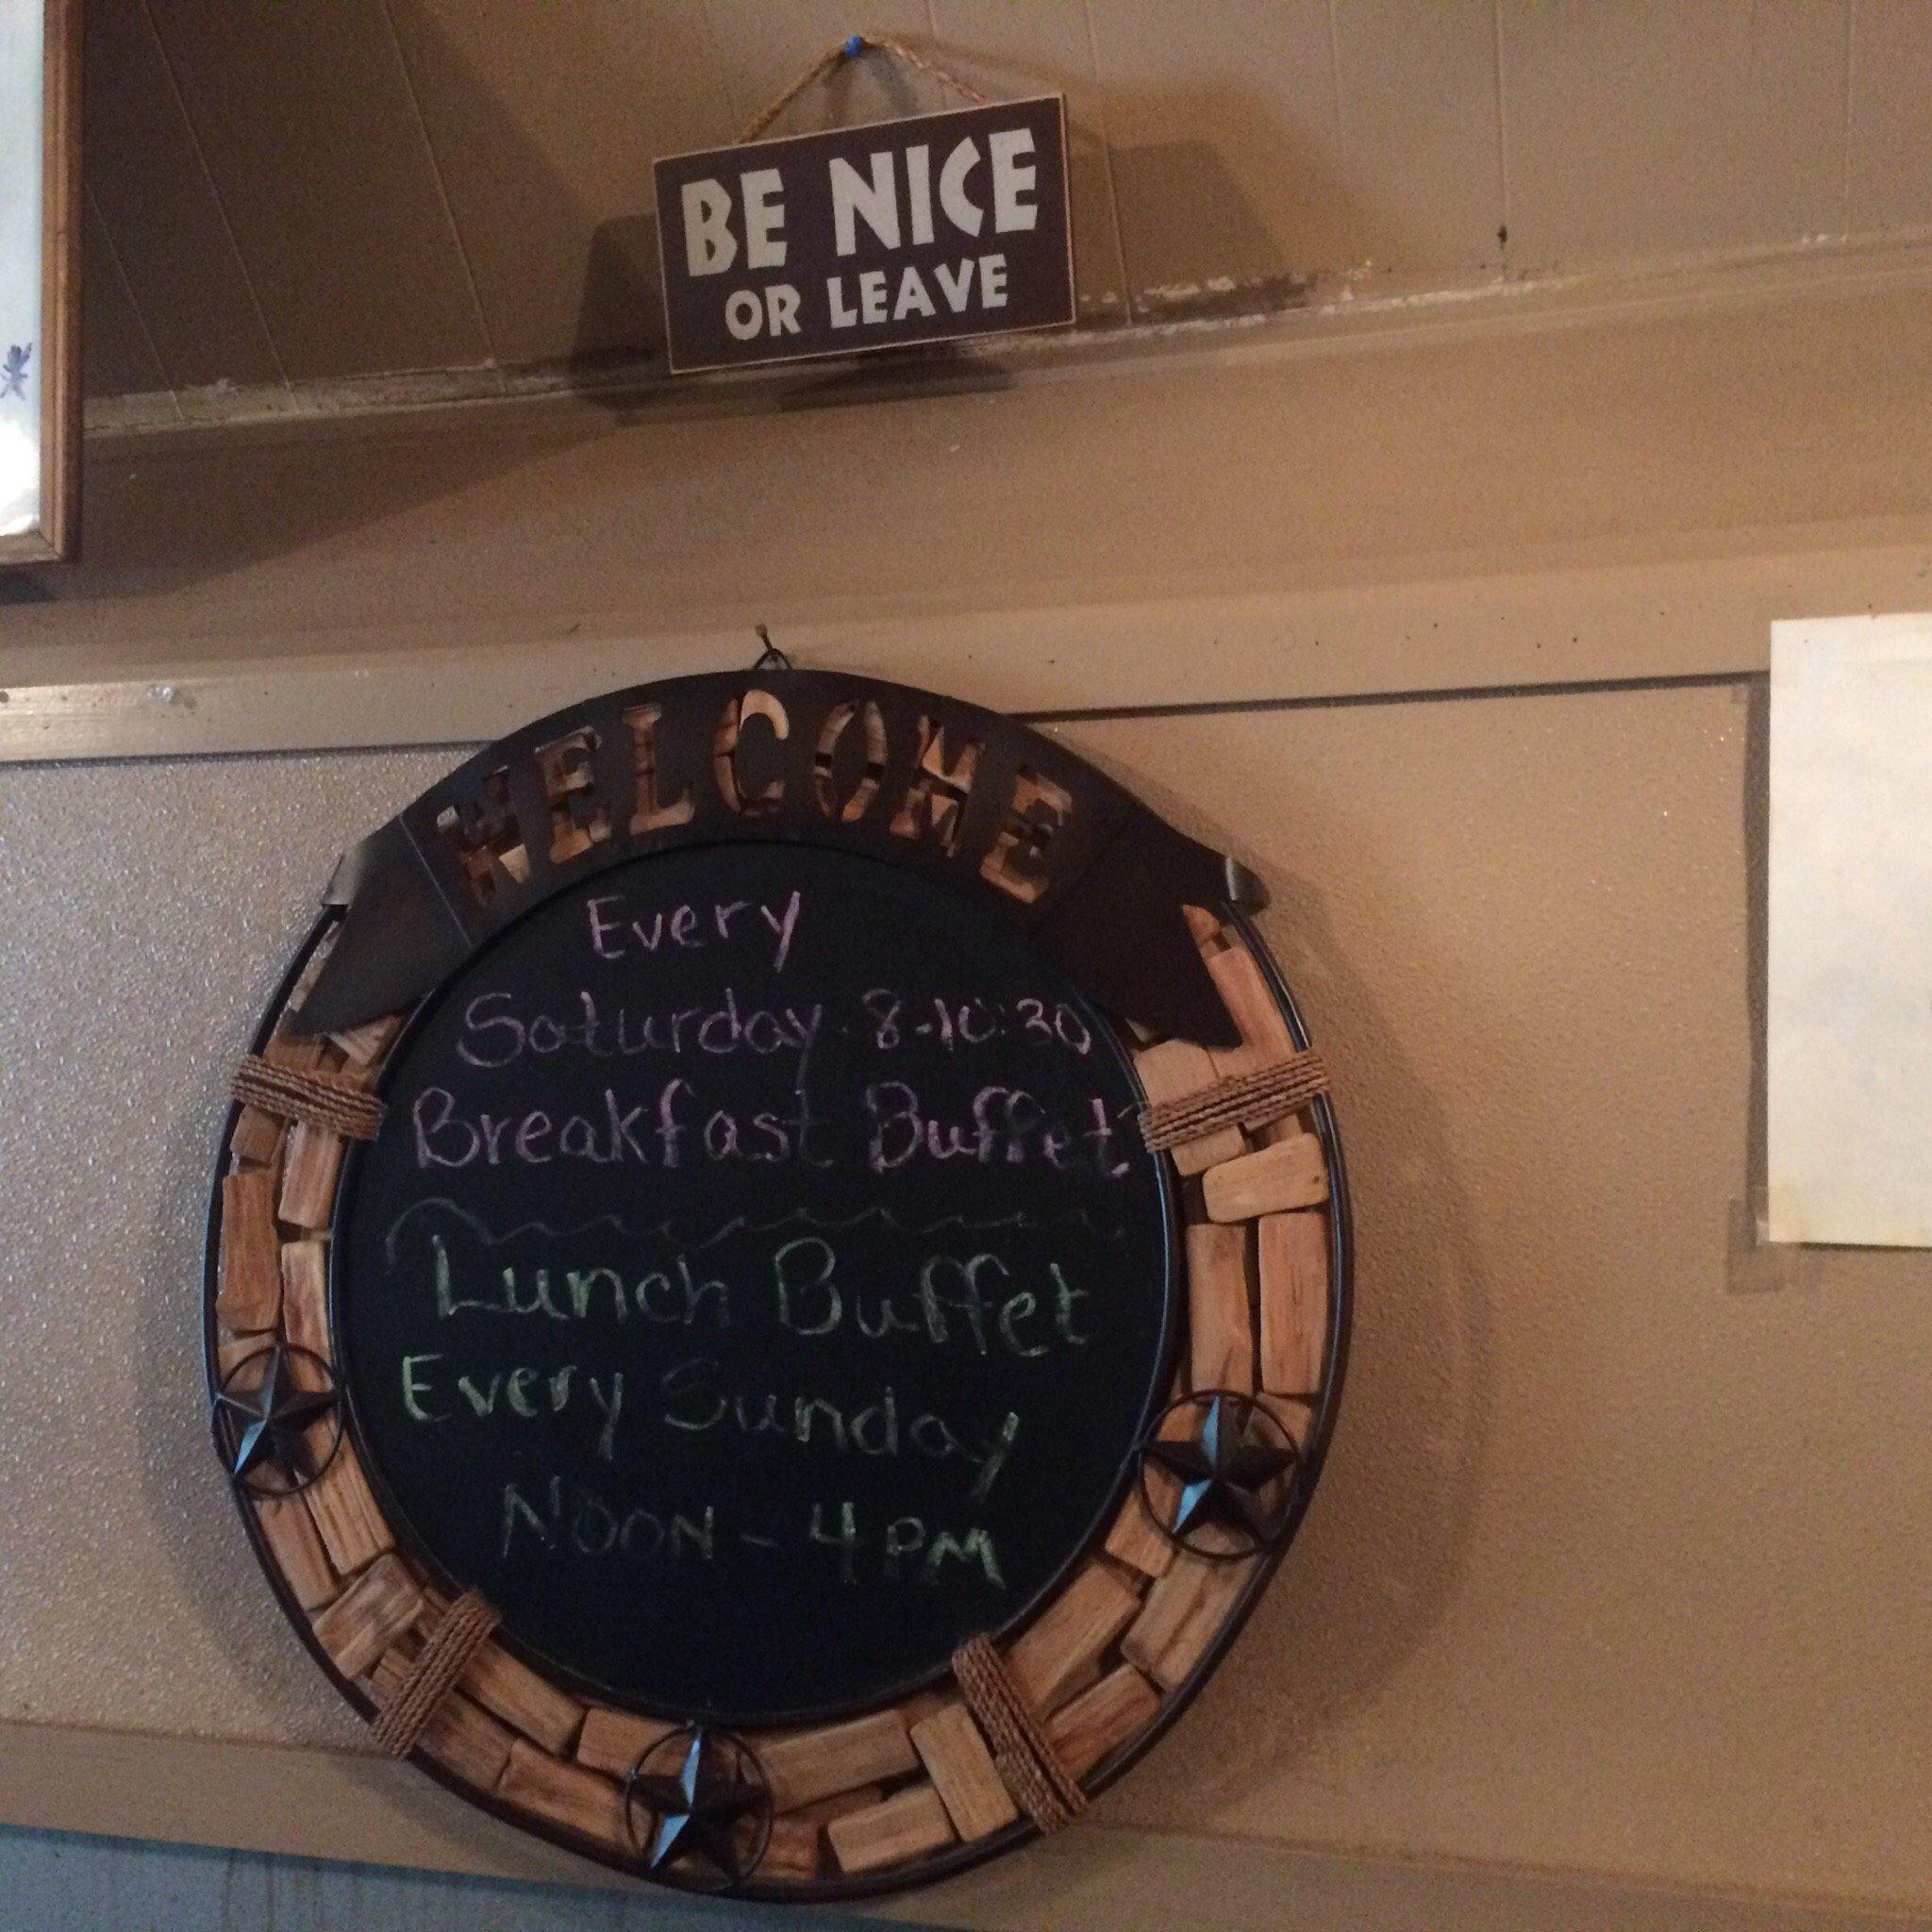 BE NICE
OR LEAVE
WELCOME
Every
Saturday 8-10:30
Breakfast Buffet
Lunch Buffet
Every Sunday
NOON - 4 PM